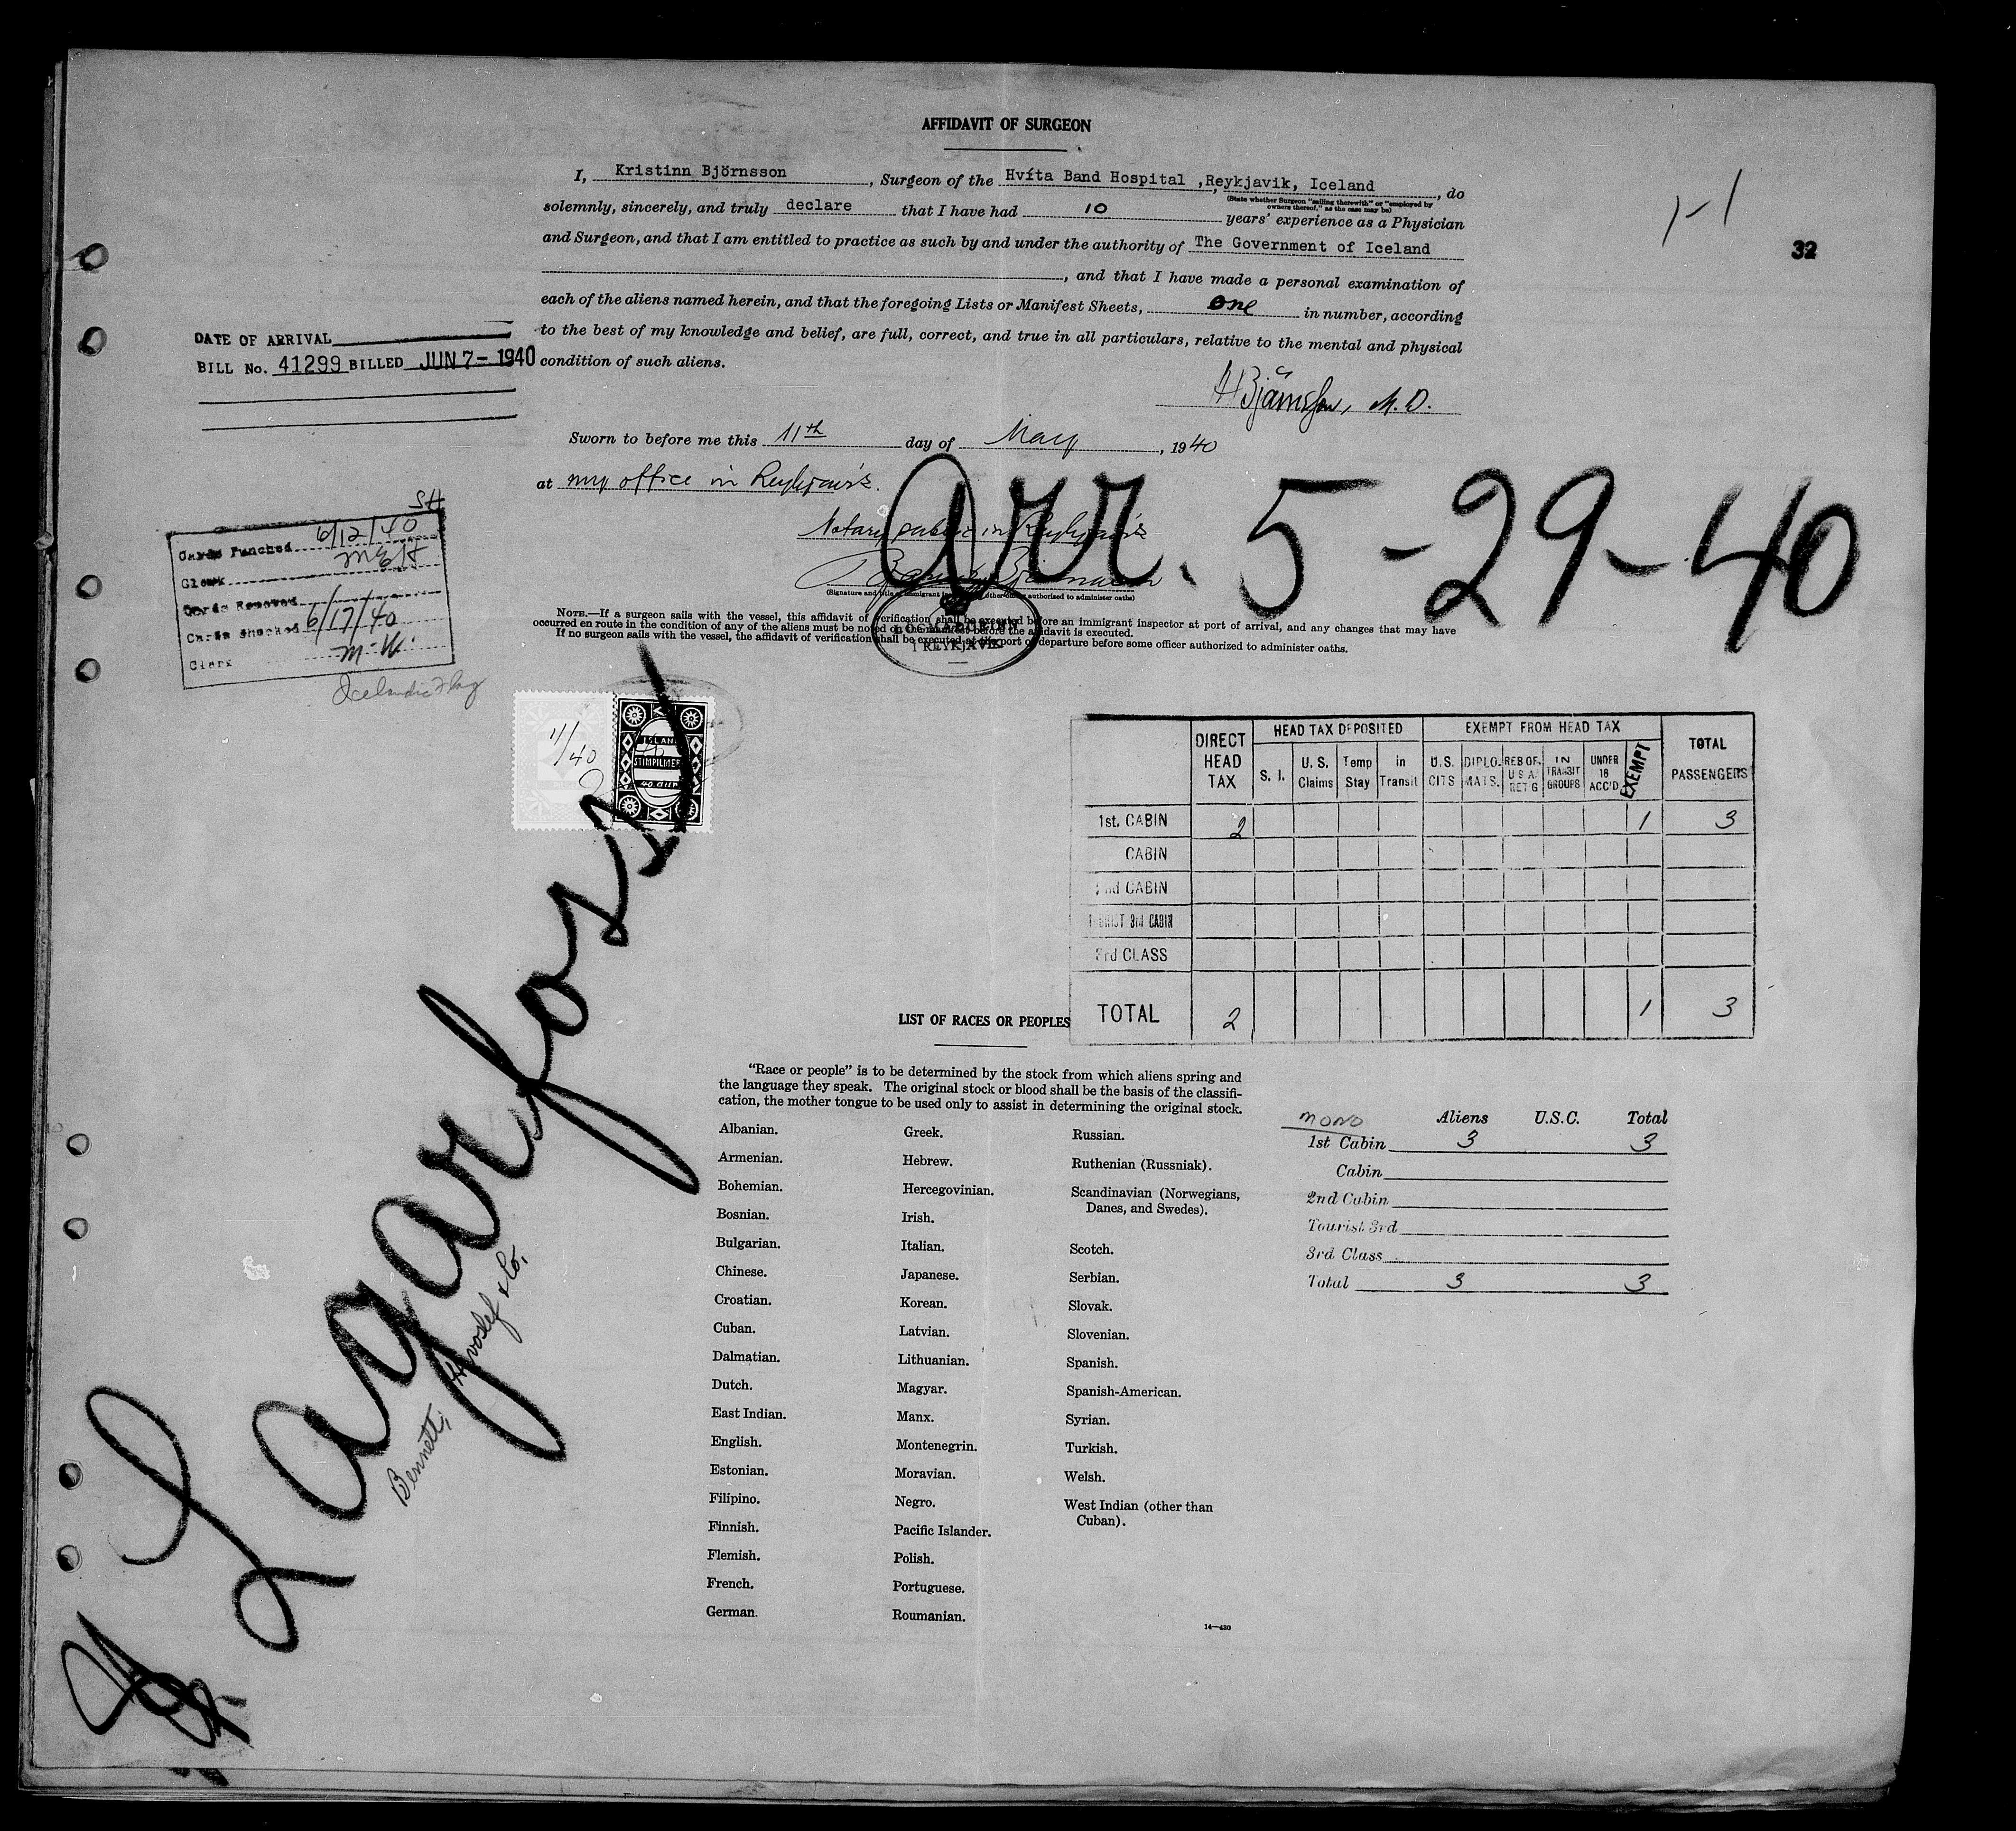 AFFIDAVIT OF SURGEON
I, Kristinn Björnsson, Surgeon of the Hvíta Band Hospital ,Reykjavik, Iceland, do
(State whether Surgeon "sailing therewith" or "employed by
owners thereof," as the case may be)
solemnly, sincerely, and truly declare that I have had 10 years' experience as a Physician
and Surgeon, and that I am entitled to practice as such by and under the authority of The Government of Iceland
, and that I have made a personal examination of
each of the aliens named herein, and that the foregoing Lists or Manifest Sheets, one in number, according
to the best of my knowledge and belief, are full, correct, and true in all particulars, relative to the mental and physical
condition of such aliens.
1-1
32
DATE OF ARRIVAL
BILL No. 41299 BILLED JUN 7- 1940
Björnsson, M.D.
Sworn to before me this 11th day of May, 1940
at my office in Reykjavik.
Notary public in Reykjavik
arr. 5-29-40
(Signature and title of immigrant inspector or other officer authorized to administer oaths)
NOTE.—If a surgeon sails with the vessel, this affidavit of verification shall be executed before an immigrant inspector at port of arrival, and any changes that may have
occurred en route in the condition of any of the aliens must be noted on the manifest before the affidavit is executed.
If no surgeon sails with the vessel, the affidavit of verification shall be executed at the port of departure before some officer authorized to administer oaths.
LÖGMAÐURINN
Í REYKJAVÍK
SH
Cards Punched 6/12/40
Clerk MEH
Cards Removed
Cards checked 6/17/40
Clerk M.W.
Icelandic Flag
11/5 40
ISLAND
STIMPILMERKI
40 AUR
Lagarfoss
Bennett, Hvoslef & Co.
DIRECT HEAD TAX
HEAD TAX DEPOSITED
EXEMPT FROM HEAD TAX
TOTAL PASSENGERS
S. I. U. S. Claims Temp Stay in Transit U.S. CITS DIPLO. MATS. RES OF. U S A. RET'G IN TRANSIT GROUPS UNDER 16 ACC'D EXEMPT
1st. CABIN 2 1 3
CABIN
2nd CABIN
TOURIST 3rd CABIN
3rd CLASS
TOTAL 2 1 3
LIST OF RACES OR PEOPLES
"Race or people" is to be determined by the stock from which aliens spring and
the language they speak. The original stock or blood shall be the basis of the classifi-
cation, the mother tongue to be used only to assist in determining the original stock.
Albanian.
Armenian.
Bohemian.
Bosnian.
Bulgarian.
Chinese.
Croatian.
Cuban.
Dalmatian.
Dutch.
East Indian.
English.
Estonian.
Filipino.
Finnish.
Flemish.
French.
German.
Greek.
Hebrew.
Hercegovinian.
Irish.
Italian.
Japanese.
Korean.
Latvian.
Lithuanian.
Magyar.
Manx.
Montenegrin.
Moravian.
Negro.
Pacific Islander.
Polish.
Portuguese.
Roumanian.
Russian.
Ruthenian (Russniak).
Scandinavian (Norwegians,
Danes, and Swedes).
Scotch.
Serbian.
Slovak.
Slovenian.
Spanish.
Spanish-American.
Syrian.
Turkish.
Welsh.
West Indian (other than
Cuban).
MONO Aliens U.S.C. Total
1st Cabin 3 3
Cabin
2nd Cabin
Tourist 3rd
3rd Class
Total 3 3
14—430